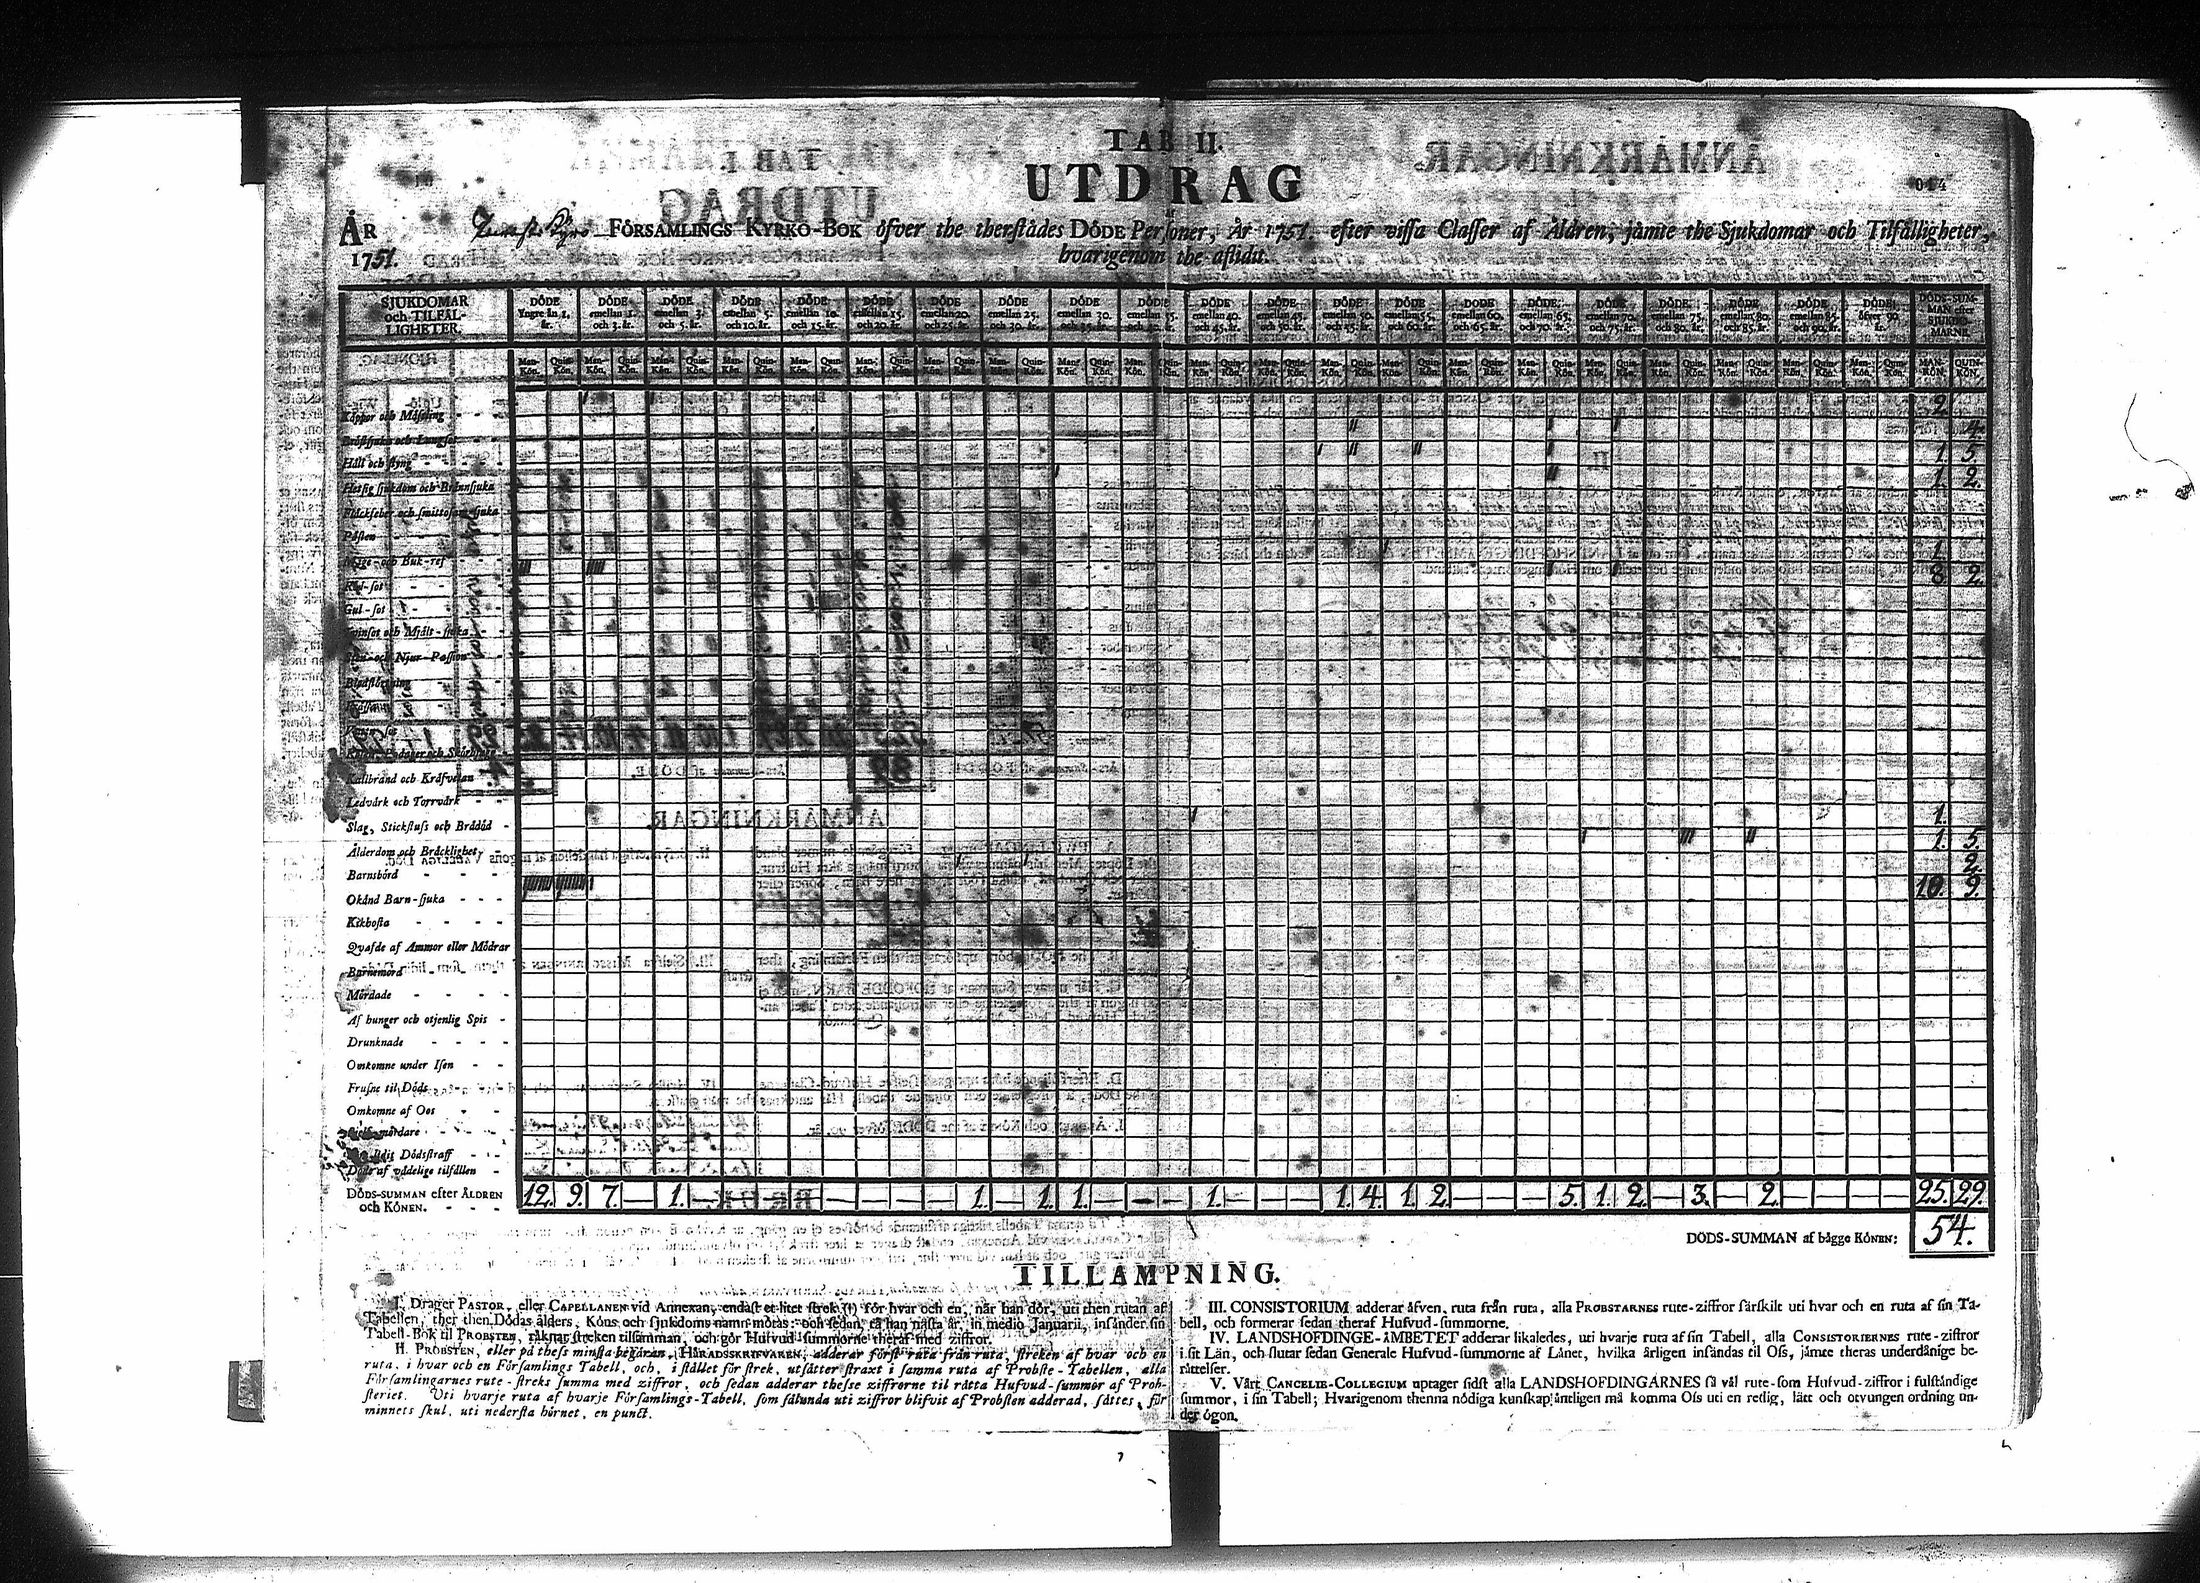 TAB II.
UTDRAG
014
ÅR 1751.
FÖRSAMLINGS KYRKO-BOK öfver the therstådes DÖDE Personer, År 1751. efter vissa Classer af Åldren, jämte the Sjukdomar och Tilfälligheter,
hvarigenom the aflidit.
SJUKDOMAR och TILFÄL-LIGHETER.
DÖDE Yngre än 1. år.
DÖDE emellan 1. och 3. år.
DÖDE emellan 3. och 5. år.
DÖDE emellan 5. och 10. år.
DÖDE emellan 10. och 15. år.
DÖDE emellan 15. och 20. år.
DÖDE emellan 20. och 25. år.
DÖDE emellan 25. och 30. år.
DÖDE emellan 30. och 35. år.
DÖDE emellan 35. och 40. år.
DÖDE emellan 40. och 45. år.
DÖDE emellan 45. och 50. år.
DÖDE emellan 50. och 55. år.
DÖDE emellan 55. och 60. år.
DÖDE emellan 60. och 65. år.
DÖDE emellan 65. och 70. år.
DÖDE emellan 70. och 75. år.
DÖDE emellan 75. och 80. år.
DÖDE emellan 80. och 85. år.
DÖDE emellan 85. och 90. år.
DÖDE öfver 90. år.
DÖDS-SUM-MAN efter SJUKDO-MARNE
Man-Kön. Quin-Kön.
MAN-KÖN. QUIN-KÖN.
Koppor och Mässling 2.
Bröstsjuka och Lungsot 4.
Håll och styng 1. 5.
Hetsig sjukdom och Brännsjuka 1. 2.
Fläckfeber och smittosam sjuka
Pästen
Mage- och Buk-ref 1.
Röd-sot 8. 2.
Gul-sot
Tvinsot och Mjält-sjuka
Sten- och Njur-Passion
Blodstörtning
Kallbrand och Kräfvetan
Ledvärk och Torrvärk
Slag, Stickfluss och Bråddöd 1.
Ålderdom och Bräcklighet 1. 5.
Barnsbörd 2.
Okänd Barn-sjuka 10. 9.
Kikhosta
Qvafde af Ammor eller Mödrar
Barnemord
Mördade
Af hunger och otjenlig Spis
Drunknade
Omkomne under Isen
Frusne til Döds
Omkomne af Oos
Sjelfmördare
Dödsstraff
Döde af vådelige tilfällen
DÖDS-SUMMAN efter ÅLDREN och KÖNEN. 12. 9. 7. — 1. — 1. — 1. 1. — 1. — 1. 4. 1. 2. — 5. 1. 2. — 3. — 2. — 25. 29.
DÖDS-SUMMAN af bägge KÖNEN: 54.
TILLÄMPNING.
I. Drager PASTOR, eller CAPELLANEN vid Annexan, endast et litet strek (1) för hvar och en, når han dör, uti then rutan af
Tabellen, ther then Dödas ålders, Köns och sjukdoms namn mötas: och sedan, tå han nästa år, in medio Januarii, insänder sin
Tabell-Bok til PROBSTEN, räknar streken tilsamman, och gör Hufvud-summorne theraf med ziffror.
II. PROBSTEN, eller på thess minsta begäran, HÄRADSSKRIFVAREN, adderar först ruta från ruta, streken af hvar och en
ruta, i hvar och en Församlings Tabell, och, i stället för strek, utsätter straxt i samma ruta af Probste-Tabellen, alla
Församlingarnes rute-streks summa med ziffror, och sedan adderar thesse ziffrorne til rätta Hufvud-summor af Prob-
steriet. Uti hvarje ruta af hvarje Församlings-Tabell, som sålunda uti ziffror blifvit af Probsten adderad, sättes, för
minnets skul, uti nedersta hörnet, en punct.
III. CONSISTORIUM adderar äfven, ruta från ruta, alla PROBSTARNES rute-ziffror särskilt uti hvar och en ruta af sin Ta-
bell, och formerar sedan theraf Hufvud-summorne.
IV. LANDSHÖFDINGE-ÄMBETET adderar likaledes, uti hvarje ruta af sin Tabell, alla CONSISTORIERNES rute-ziffror
i sit Län, och slutar sedan Generale Hufvud-summorne af Länet, hvilka årligen insändas til Oss, jämte theras underdånige be-
rättelser.
V. Vårt CANCELIE-COLLEGIUM uptager sidst alla LANDSHÖFDINGARNES så väl rute-som Hufvud-ziffror i fulständige
summor, i sin Tabell; Hvarigenom thenna nödiga kunskap äntligen må komma Oss uti en redig, lätt och otvungen ordning un-
der ögon.